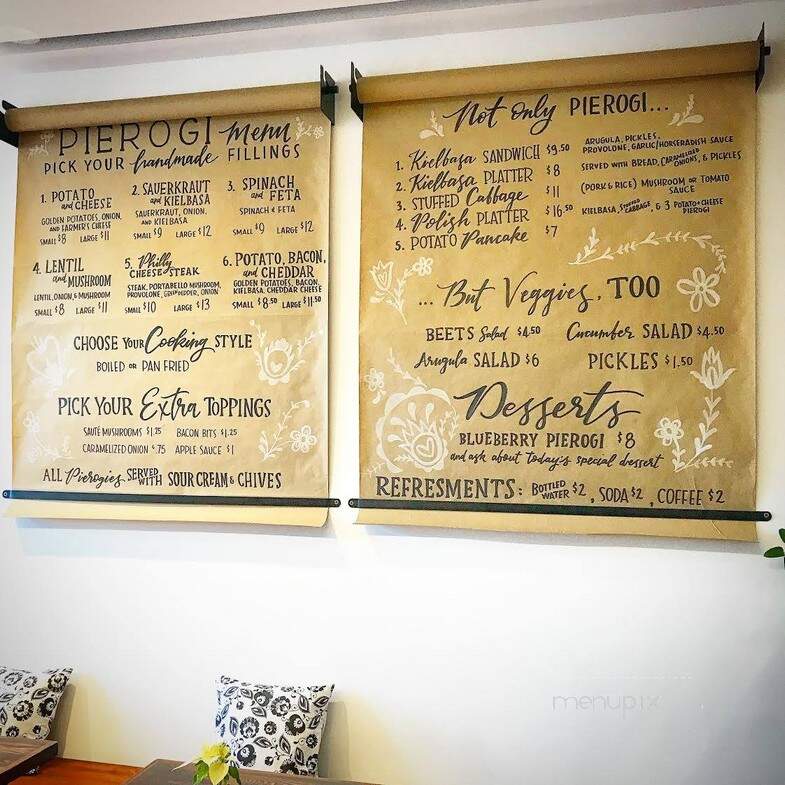 PIEROGI menu
PICK YOUR handmade FILLINGS
1. POTATO and CHEESE
GOLDEN POTATOES, ONION, AND FARMER'S CHEESE
SMALL $8 LARGE $11
2. SAUERKRAUT and KIELBASA
SAUERKRAUT, ONION, AND KIELBASA
SMALL $9 LARGE $12
3. SPINACH and FETA
SPINACH & FETA
SMALL $9 LARGE $12
4. LENTIL and MUSHROOM
LENTIL, ONION, & MUSHROOM
SMALL $8 LARGE $11
5. Philly CHEESE STEAK
STEAK, PORTABELLO MUSHROOM, PROVOLONE, GREEN PEPPER, ONION
SMALL $10 LARGE $13
6. POTATO, BACON, and CHEDDAR
GOLDEN POTATOES, BACON, KIELBASA, CHEDDAR CHEESE
SMALL $8.50 LARGE $11.50
CHOOSE YOUR Cooking STYLE
BOILED OR PAN FRIED
PICK YOUR Extra TOPPINGS
SAUTÉ MUSHROOMS $1.25 BACON BITS $1.25
CARAMELIZED ONION $.75 APPLE SAUCE $1
ALL Pierogies SERVED WITH SOUR CREAM & CHIVES
Not only PIEROGI...
1. Kielbasa SANDWICH $9.50 ARUGULA, PICKLES, PROVOLONE, GARLIC/HORSERADISH SAUCE
2. Kielbasa PLATTER $8 SERVED WITH BREAD, CARAMELIZED ONIONS, & PICKLES
3. STUFFED Cabbage $11 (PORK & RICE) MUSHROOM OR TOMATO SAUCE
4. Polish PLATTER $16.50 KIELBASA, STUFFED CABBAGE, & 3 POTATO & CHEESE PIEROGI
5. POTATO Pancake $7
... But Veggies, TOO
BEETS Salad $4.50 Cucumber SALAD $4.50
Arugula SALAD $6 PICKLES $1.50
Desserts
BLUEBERRY PIEROGI $8
and ask about today's special dessert
REFRESMENTS: BOTTLED WATER $2, SODA $2, COFFEE $2
menupix